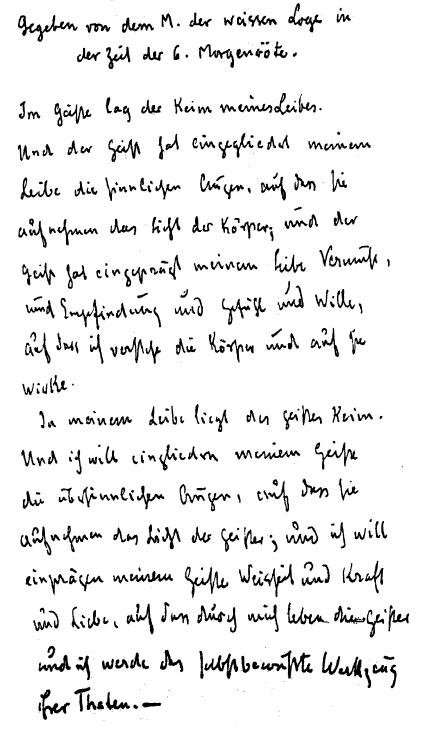 Gegeben von dem M. der weissen Loge in
der Zeit der 6. Morgenröte.
Im Geiste lag der Keim meines Leibes.
Und der Geist hat eingegliedert meinem
Leibe die sinnlichen Augen, auf dass sie
aufnehmen das Licht der Körper; und der
Geist hat eingeprägt meinem Leibe Vernunft,
und Empfindung und Gefühl und Wille,
auf dass ich verstehe die Körper und auf sie
wirke.
In meinem Leibe liegt des Geistes Keim.
Und ich will eingliedern meinem Geiste
die übersinnlichen Augen, auf dass sie
aufnehmen das Licht der Geister; und ich will
einprägen meinem Geiste Weisheit und Kraft
und Liebe, auf dass durch mich leben die Geister
und ich werde das selbstbewusste Werkzeug
ihrer Thaten.—